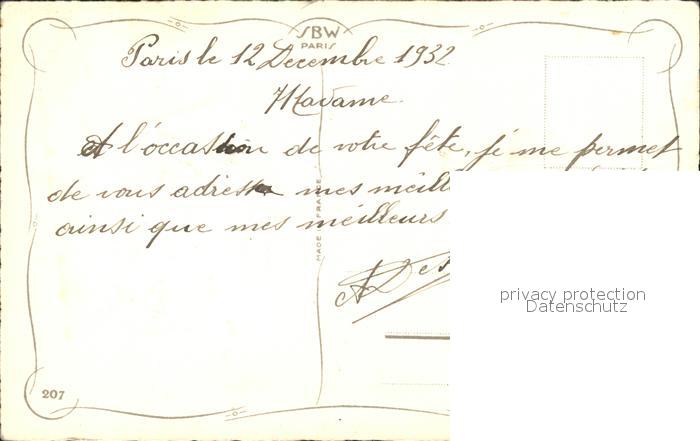 SBW
PARIS
Paris le 12 Decembre 1932
Madame.
A l'occasion de votre fête, je me permet
de vous adresser mes meill
ainsi que mes meilleurs
MADE IN FRANCE
privacy protection
Datenschutz
207